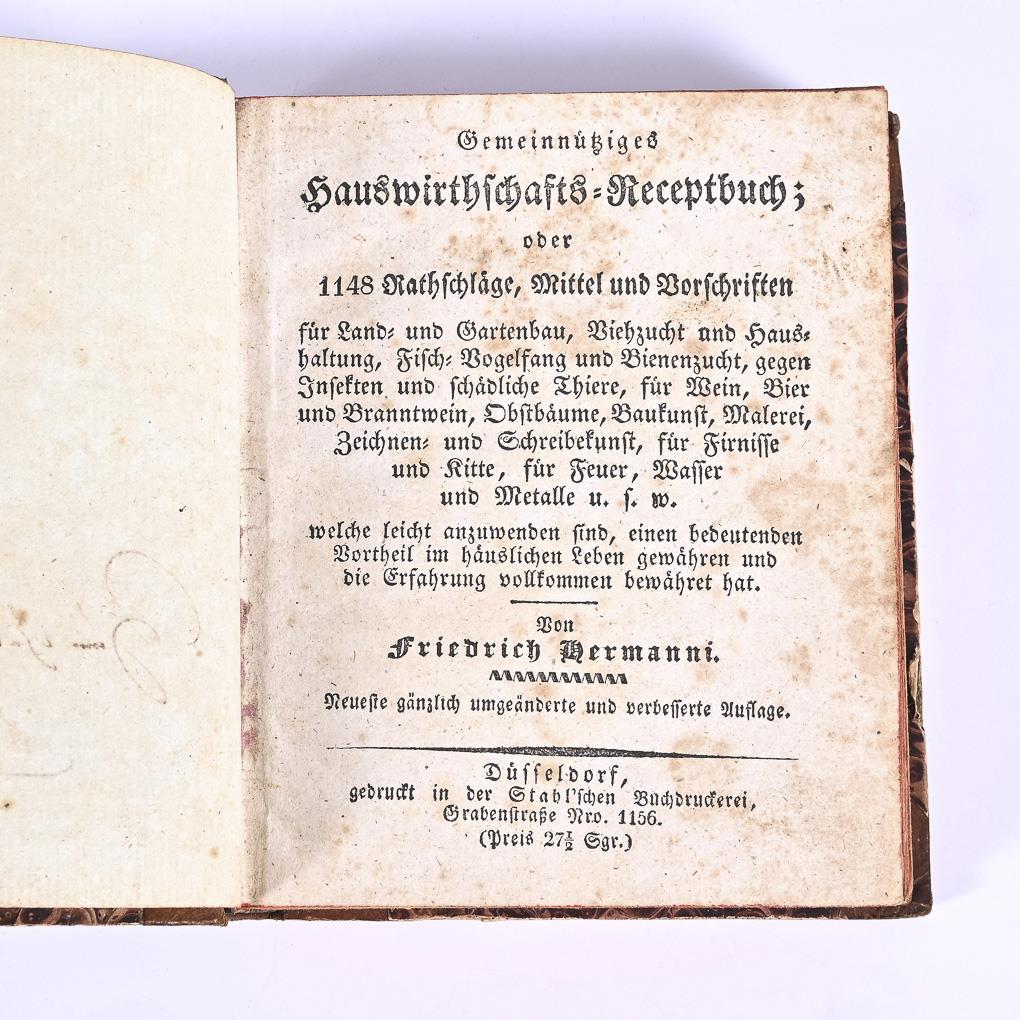 Gemeinnützĩges
Hauswirthschafts-Receptbuch;
oder
1148 Rathschläge, Mittel und Vorschriften
für Land- und Gartenbau, Viehzucht und Haus-
haltung, Fisch- Vogelfang und Bienenzucht, gegen
Insekten und schädliche Thiere, für Wein, Bier
und Branntwein, Obstbäume, Baukunst, Malerei,
Zeichnen- und Schreibekunst, für Firnisse
und Kitte, für Feuer, Wasser
und Metalle u. s. w.
welche leicht anzuwenden sind, einen bedeutenden
Vortheil im häuslichen Leben gewähren und
die Erfahrung vollkommen bewähret hat.
Von
Friedrich Hermanni.
Neueste gänzlich umgeänderte und verbesserte Auflage.
Düsseldorf,
gedruckt in der Stahl'schen Buchdruckerei,
Grabenstraße Nro. 1156.
(Preis 27½ Sgr.)